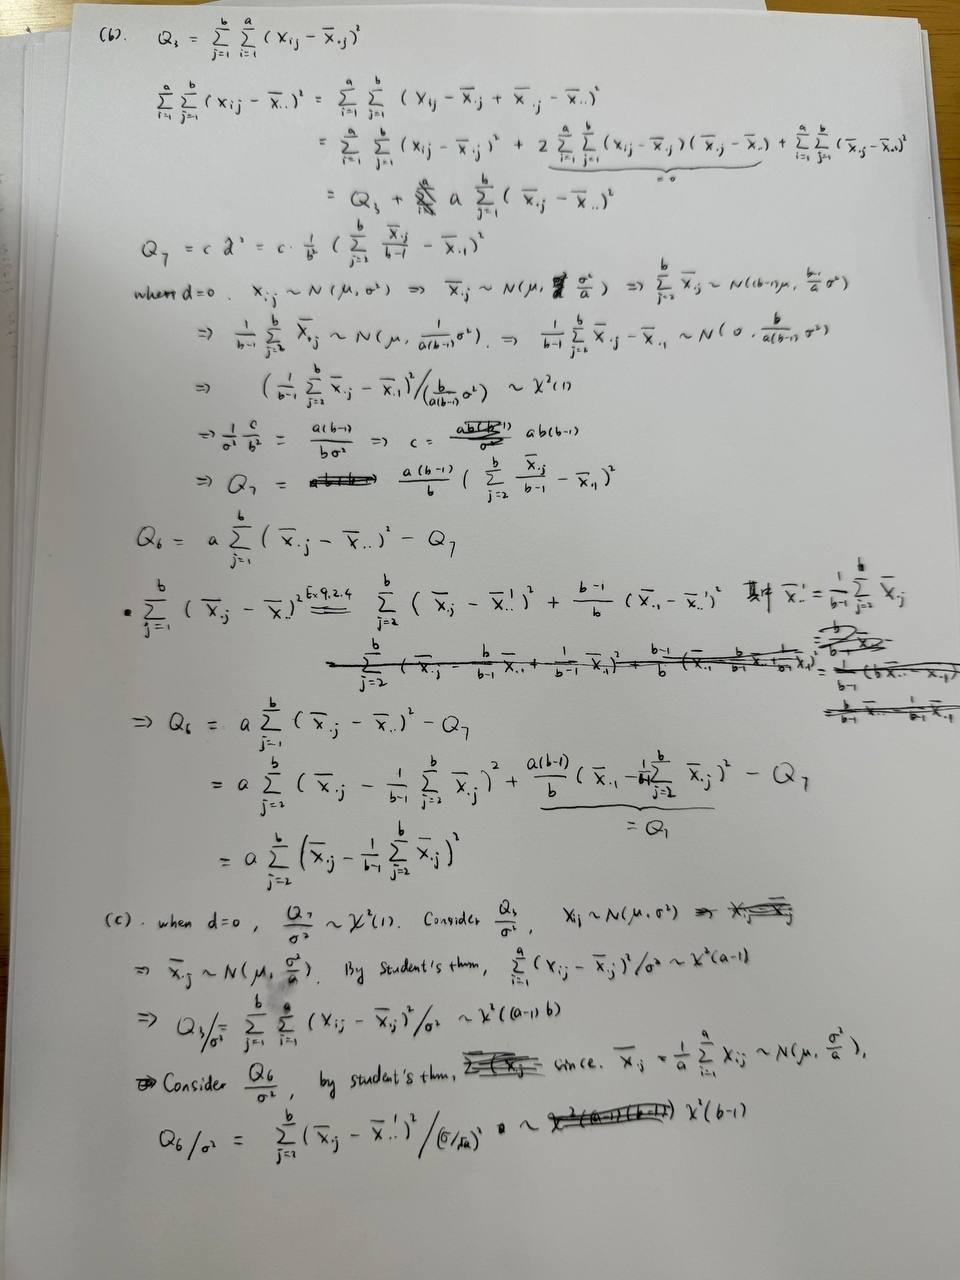 (b). Q₃ = Σ_{j=1}^{b} Σ_{i=1}^{a} (x_{ij} − x̄_{·j})²
Σ_{i=1}^{a} Σ_{j=1}^{b} (x_{ij} − x̄_{··})² = Σ_{i=1}^{a} Σ_{j=1}^{b} (x_{ij} − x̄_{·j} + x̄_{·j} − x̄_{··})²
= Σ_{i=1}^{a} Σ_{j=1}^{b} (x_{ij} − x̄_{·j})² + 2 Σ_{i=1}^{a} Σ_{j=1}^{b} (x_{ij} − x̄_{·j})(x̄_{·j} − x̄_{··}) + Σ_{i=1}^{a} Σ_{j=1}^{b} (x̄_{·j} − x̄_{··})²
= 0
= Q₃ + a Σ_{j=1}^{b} (x̄_{·j} − x̄_{··})²
Q₇ = c d̂² = c · 1/b² (Σ_{j=2}^{b} x̄_{·j}/(b−1) − x̄_{·1})²
when d=0. x_{ij} ~ N(μ, σ²) ⇒ x̄_{·j} ~ N(μ, σ²/a) ⇒ Σ_{j=2}^{b} x̄_{·j} ~ N((b−1)μ, (b−1)/a σ²)
⇒ 1/(b−1) Σ_{j=2}^{b} x̄_{·j} ~ N(μ, 1/(a(b−1)) σ²). ⇒ 1/(b−1) Σ_{j=2}^{b} x̄_{·j} − x̄_{·1} ~ N(0, b/(a(b−1)) σ²)
⇒ (1/(b−1) Σ_{j=2}^{b} x̄_{·j} − x̄_{·1})² / (b/(a(b−1)) σ²) ~ χ²(1)
⇒ 1/σ² c/b² = a(b−1)/(bσ²) ⇒ c = ab(b−1)
⇒ Q₇ = a(b−1)/b (Σ_{j=2}^{b} x̄_{·j}/(b−1) − x̄_{·1})²
Q₆ = a Σ_{j=1}^{b} (x̄_{·j} − x̄_{··})² − Q₇
· Σ_{j=1}^{b} (x̄_{·j} − x̄_{··})² =^{Ex 9.2.4} Σ_{j=2}^{b} (x̄_{·j} − x̄_{··}')² + (b−1)/b (x̄_{·1} − x̄_{··}')² 其中 x̄_{··}' = 1/(b−1) Σ_{j=2}^{b} x̄_{·j}
⇒ Q₆ = a Σ_{j=1}^{b} (x̄_{·j} − x̄_{··})² − Q₇
= a Σ_{j=2}^{b} (x̄_{·j} − 1/(b−1) Σ_{j=2}^{b} x̄_{·j})² + a(b−1)/b (x̄_{·1} − 1/(b−1) Σ_{j=2}^{b} x̄_{·j})² − Q₇
= Q₇
= a Σ_{j=2}^{b} (x̄_{·j} − 1/(b−1) Σ_{j=2}^{b} x̄_{·j})²
(c). when d=0, Q₇/σ² ~ χ²(1). Consider Q₃/σ², x_{ij} ~ N(μ, σ²)
⇒ x̄_{·j} ~ N(μ, σ²/a). By student's thm, Σ_{i=1}^{a} (x_{ij} − x̄_{·j})²/σ² ~ χ²(a−1)
⇒ Q₃/σ² = Σ_{j=1}^{b} Σ_{i=1}^{a} (x_{ij} − x̄_{·j})²/σ² ~ χ²((a−1)b)
Consider Q₆/σ², by student's thm, since. x̄_{·j} = 1/a Σ_{i=1}^{a} x_{ij} ~ N(μ, σ²/a),
Q₆/σ² = Σ_{j=2}^{b} (x̄_{·j} − x̄_{··}')²/(σ/√a)² ~ χ²(b−1)